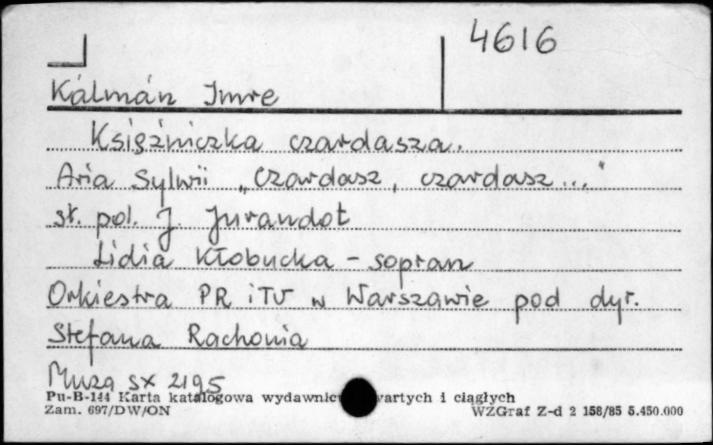 4616
Kálmán Imre
Księżniczka czardasza.
Aria Sylwii „Czardasz, czardasz..."
sł. pol. J Jurandot
Lidia Kłobucka - sopran
Orkiestra PR i TV w Warszawie pod dyr.
Stefana Rachonia
Muza SX 2195
Pu-B-144 Karta katalogowa wydawnic wartych i ciągłych
Zam. 697/DW/ON WZGraf Z-d 2 158/85 5.450.000